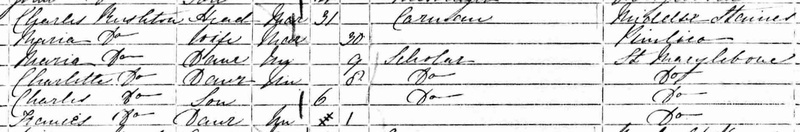 Charles Rushton Head Mar 31 Carman Middlsx Staines
Maria Do Wife Mar 30 Pimlico
Maria Do Daur Un 9 Scholar St Marylebone
Charlotte Do Daur Un 8 Do Do
Charles Do Son 6 Do Do
Frances Do Daur Un 1 Do